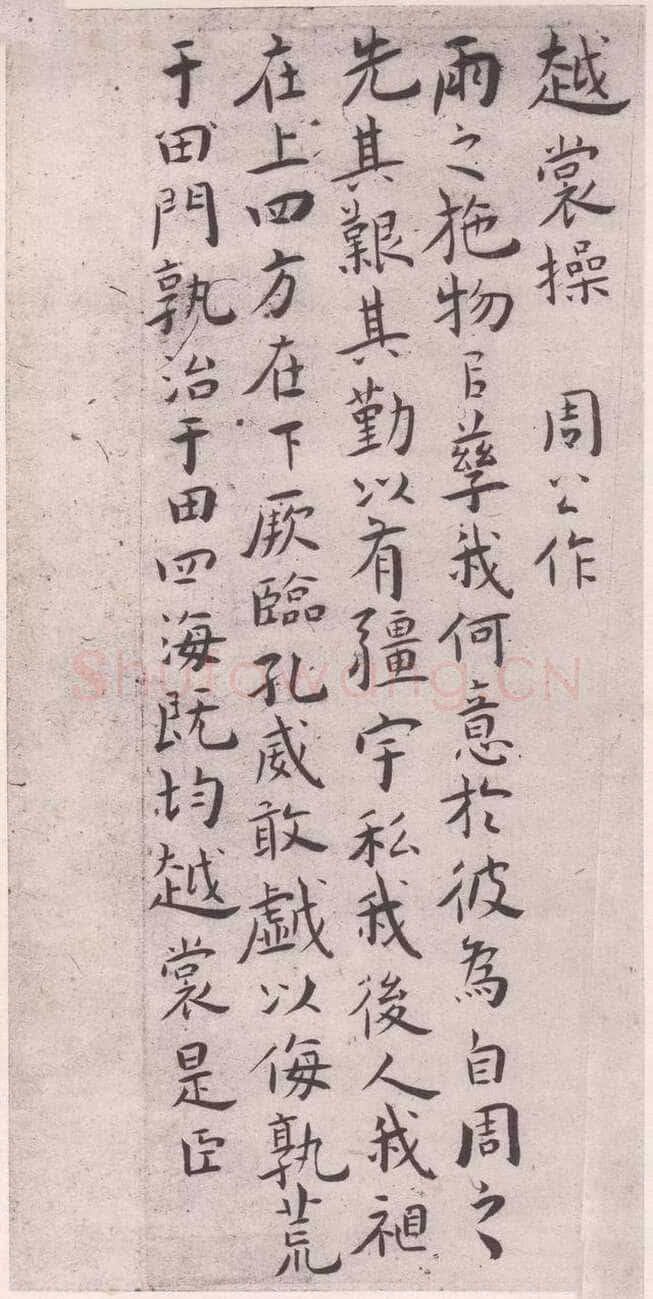 越裳操 周公作
雨之施物以孳我何意於彼為自周之
先其艱其勤以有疆宇私我後人我祖
在上四方在下厥臨孔威敢戲以侮孰荒
于田門孰治于田四海既均越裳是臣
Shufawang.CN